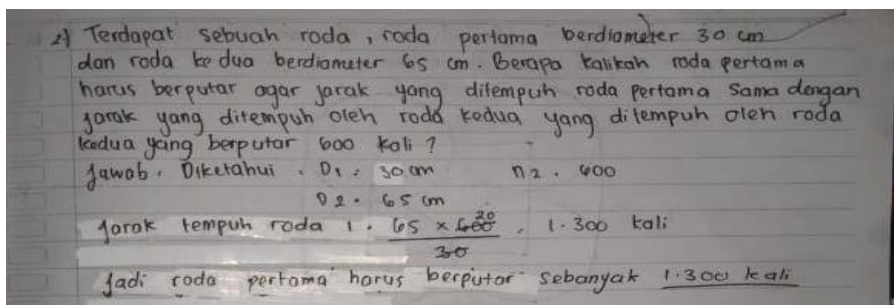 2) Terdapat sebuah roda, roda pertama berdiameter 30 cm
dan roda ke dua berdiameter 65 cm. Berapa kalikah roda pertama
harus berputar agar jarak yang ditempuh roda pertama sama dengan
jarak yang ditempuh oleh roda kedua yang ditempuh oleh roda
kedua yang berputar 600 kali ?
Jawab. Diketahui : D1 = 30 cm n2 = 600
D2 = 65 cm
Jarak tempuh roda 1 = 65 × 600 20 = 1.300 kali
30
Jadi roda pertama harus berputar sebanyak 1.300 kali